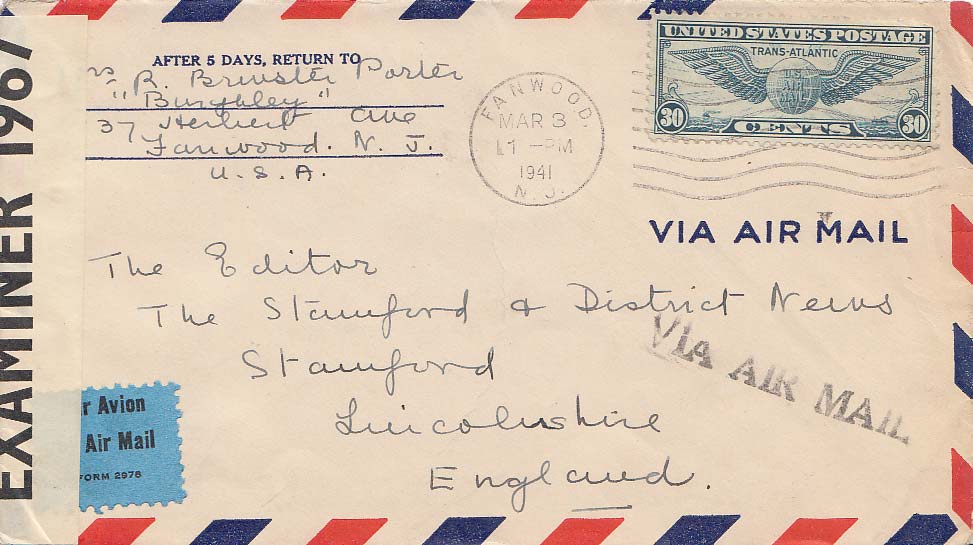 EXAMINER 1967
AFTER 5 DAYS, RETURN TO
rs R. Brewster Porter
"Burghley"
37 Herbert Ave
Fanwood. N. J.
U.S.A.
FANWOOD.
MAR 3
1 -PM
1941
N.J.
UNITED STATES POSTAGE
TRANS-ATLANTIC
U.S.
AIR
MAIL
30 CENTS 30
VIA AIR MAIL
The Editor
The Stamford & District News
Stamford
Lincolnshire
England.
VIA AIR MAIL
r Avion
Air Mail
FORM 2978